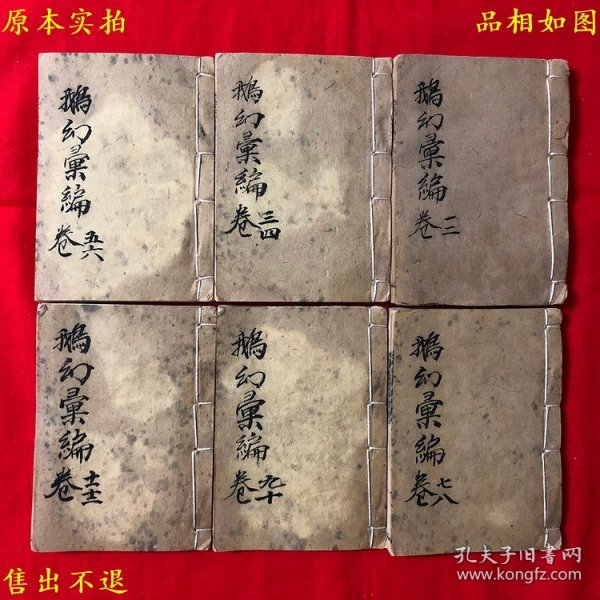 原本实拍
品相如图
鵝幻彙編
卷五六
鵝幻彙編
卷三四
鵝幻彙編
卷一二
鵝幻彙編
卷十一十二
鵝幻彙編
卷九十
鵝幻彙編
卷七八
售出不退
孔夫子旧书网
www.kongfz.com